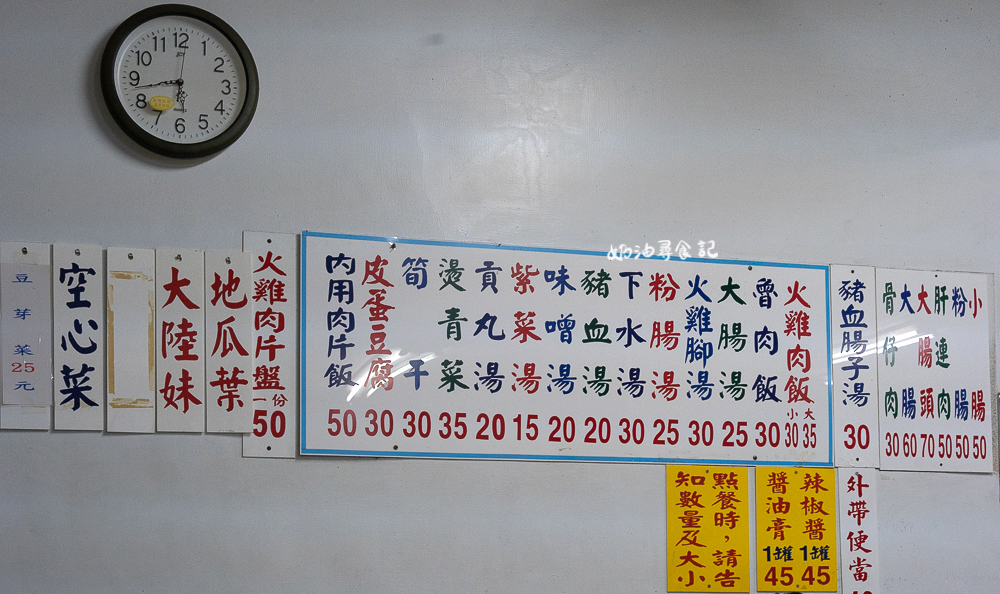 12 1 2 3 4 5 6 7 8 9 10 11
奶油尋食記
小腸 50
粉腸 50
肝連肉 50
大腸頭 70
大腸 60
骨仔肉 30
豬血腸子湯 30
火雞肉飯 小30 大35
魯肉飯 30
大腸湯 25
火雞腳湯 30
粉腸湯 25
下水湯 30
豬血湯 20
味噌湯 20
紫菜湯 15
貢丸湯 20
燙青菜 35
筍干 30
皮蛋豆腐 30
內用肉片飯 50
火雞肉片盤 一份 50
地瓜葉
大陸妹
空心菜
豆芽菜25元
外帶便當
辣椒醬 1罐 45
醬油膏 1罐 45
點餐時，請告
知數量及大小